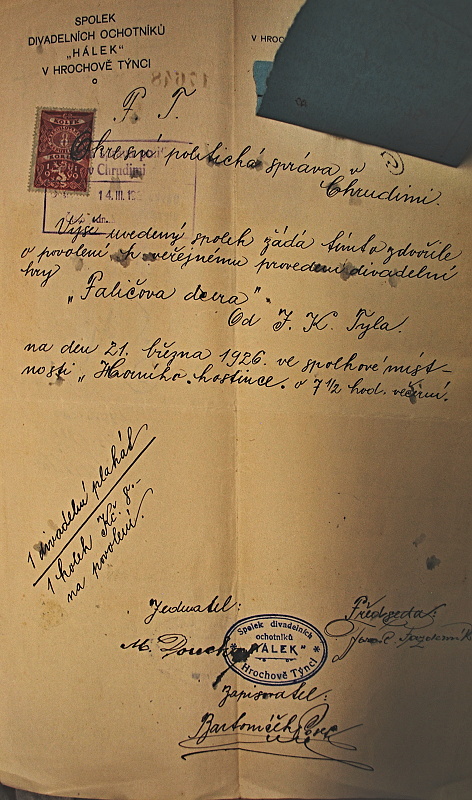 SPOLEK
DIVADELNÍCH OCHOTNÍKŮ
„HÁLEK"
V HROCHOVĚ TÝNCI
V HROCHOV
17648
P. T.
Okresní politická správa v
Chrudimi.
v Chrudimi
14. III. 192
Výše uvedený spolek žádá tímto zdvořile
o povolení k veřejnému provedení divadelní
hry
„Paličova dcera".
Od J. K. Tyla.
na den 21. března 1926. ve spolkové míst-
nosti „Horního hostince. o 7 1/2 hod. večerní.
1 divadelní plakát
1 kolek Kč. 8.-
na povolení.
Jednatel:
Předseda:
M. Doucha
Spolek divadelních
ochotníků
„HÁLEK"
Hrochově Týnci
Zapisovatel: